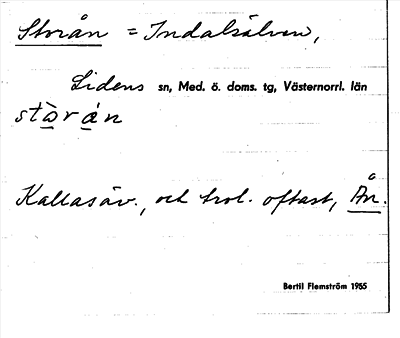 Storån = Indalsälven,
Lidens sn, Med. ö. doms. tg, Västernorrl. län
stòrán
Kallas äv., och trol. oftast, Ån.
Bertil Flemström 1955